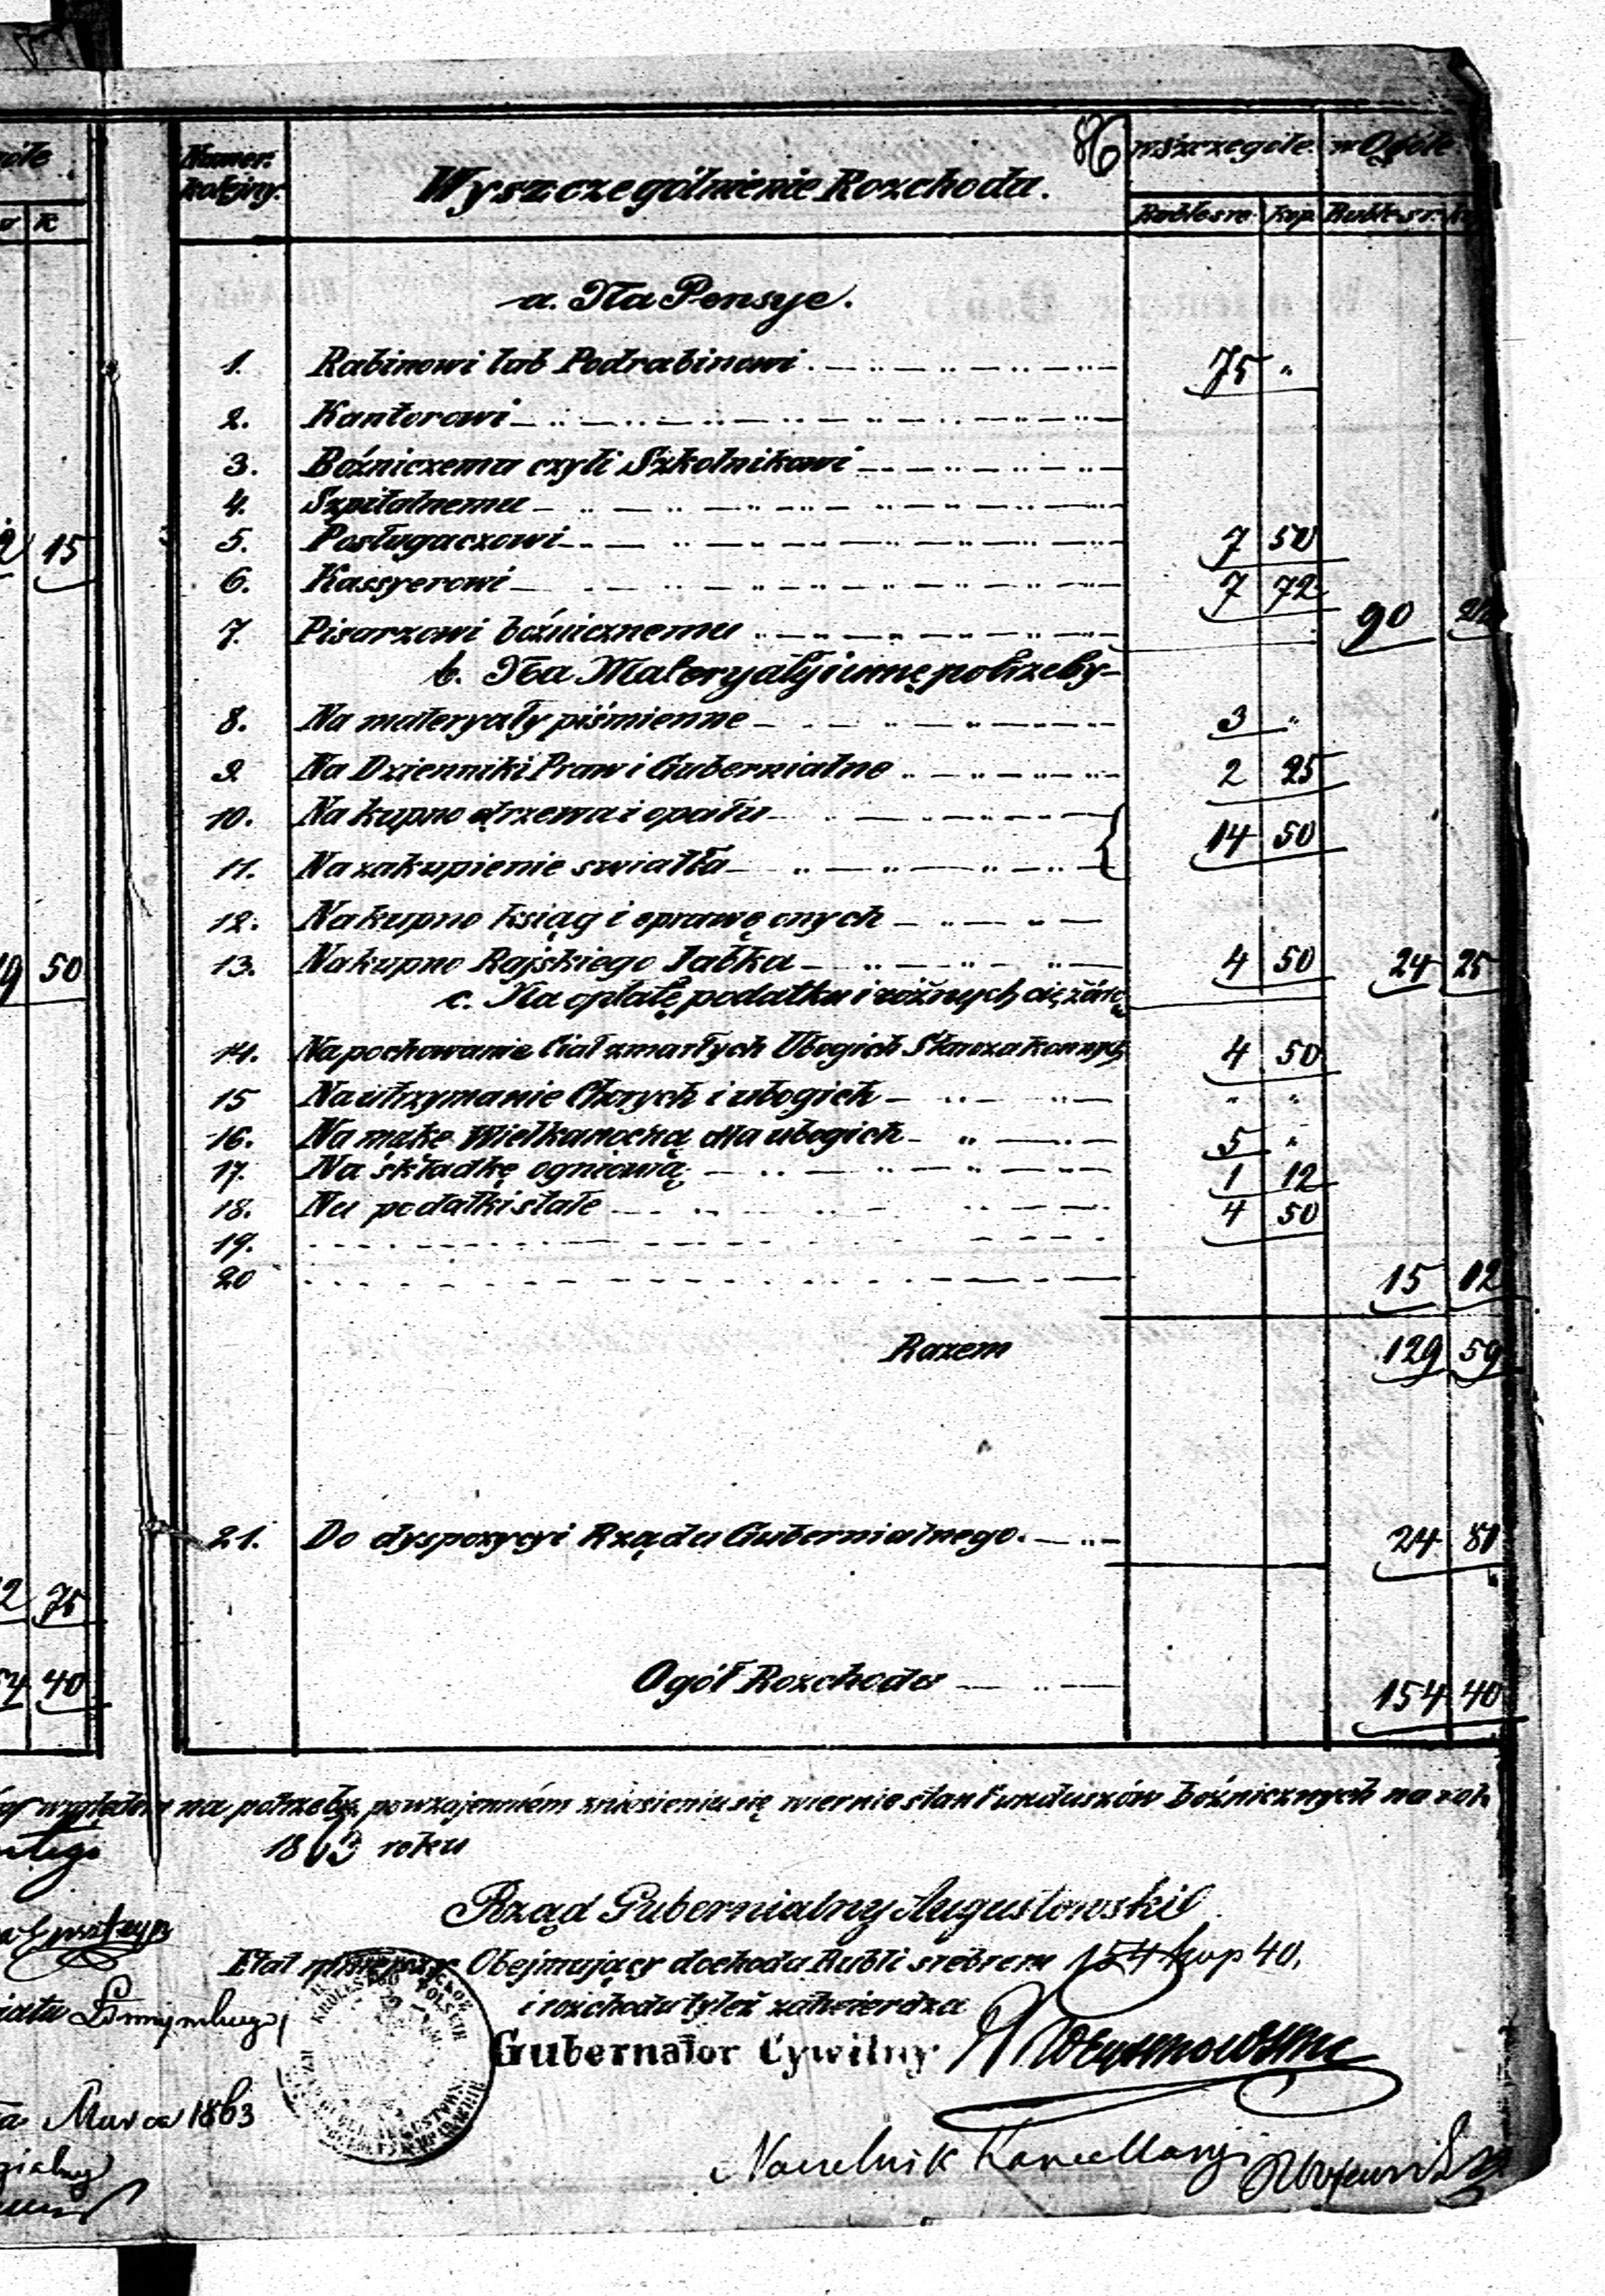 86
Numer kolejny. Wyszczególnienie Rozchodu. w szczególe w Ogóle
Ruble sre. Kop. Ruble sr. k
a. Na Pensye.
1. Rabinowi lub Podrabinowi 75 "
2. Kantorowi
3. Bóżniczemu czyli Szkolnikowi
4. Szpitalnemu
5. Posługaczowi 7 50
6. Kassyerowi 7 72
7. Pisarzowi bóżnicznemu 90
b. Na Materyały i inne potrzeby
8. Na materyały piśmienne 3 "
9. Na Dzienniki Praw i Gubernialne 2 25
10. Na kupno drzewa i opału
14 50
11. Na zakupienie swiatła
12. Na kupno ksiąg i oprawę onych
13. Na kupno Rajskiego Jabłka 4 50 24 25
c. Na opłatę podatku i różnych cięzárów
14. Na pochowanie Ciał zmarłych Ubogich Starozakonnych 4 50
15 Na utrzymanie Chorych i ubogich " "
16. Na mąkę Wielkanocną dla ubogich 5 "
17. Na składkę ogniową 1 12
18. Na podatki stałe 4 50
19.
20 15 12
Razem 129 59
21. Do dyspozycyi Rządu Gubernialnego. 24 81
Ogół Rozchodu 154 40
15
50
75
40
względem na potrzeby, powzajemném zniesieniu się wiernie stan funduszów bóżnicznych na rok
1863 roku
Rząd Gubernialny Augustowski
Etat niniejszy Obejmujący dochodu Rubli srebrem 154 kop 40.
i rozchodu tyleż zatwierdza
Gubernator Cywilny
Marca 1863
Naczelnik Kancellaryi